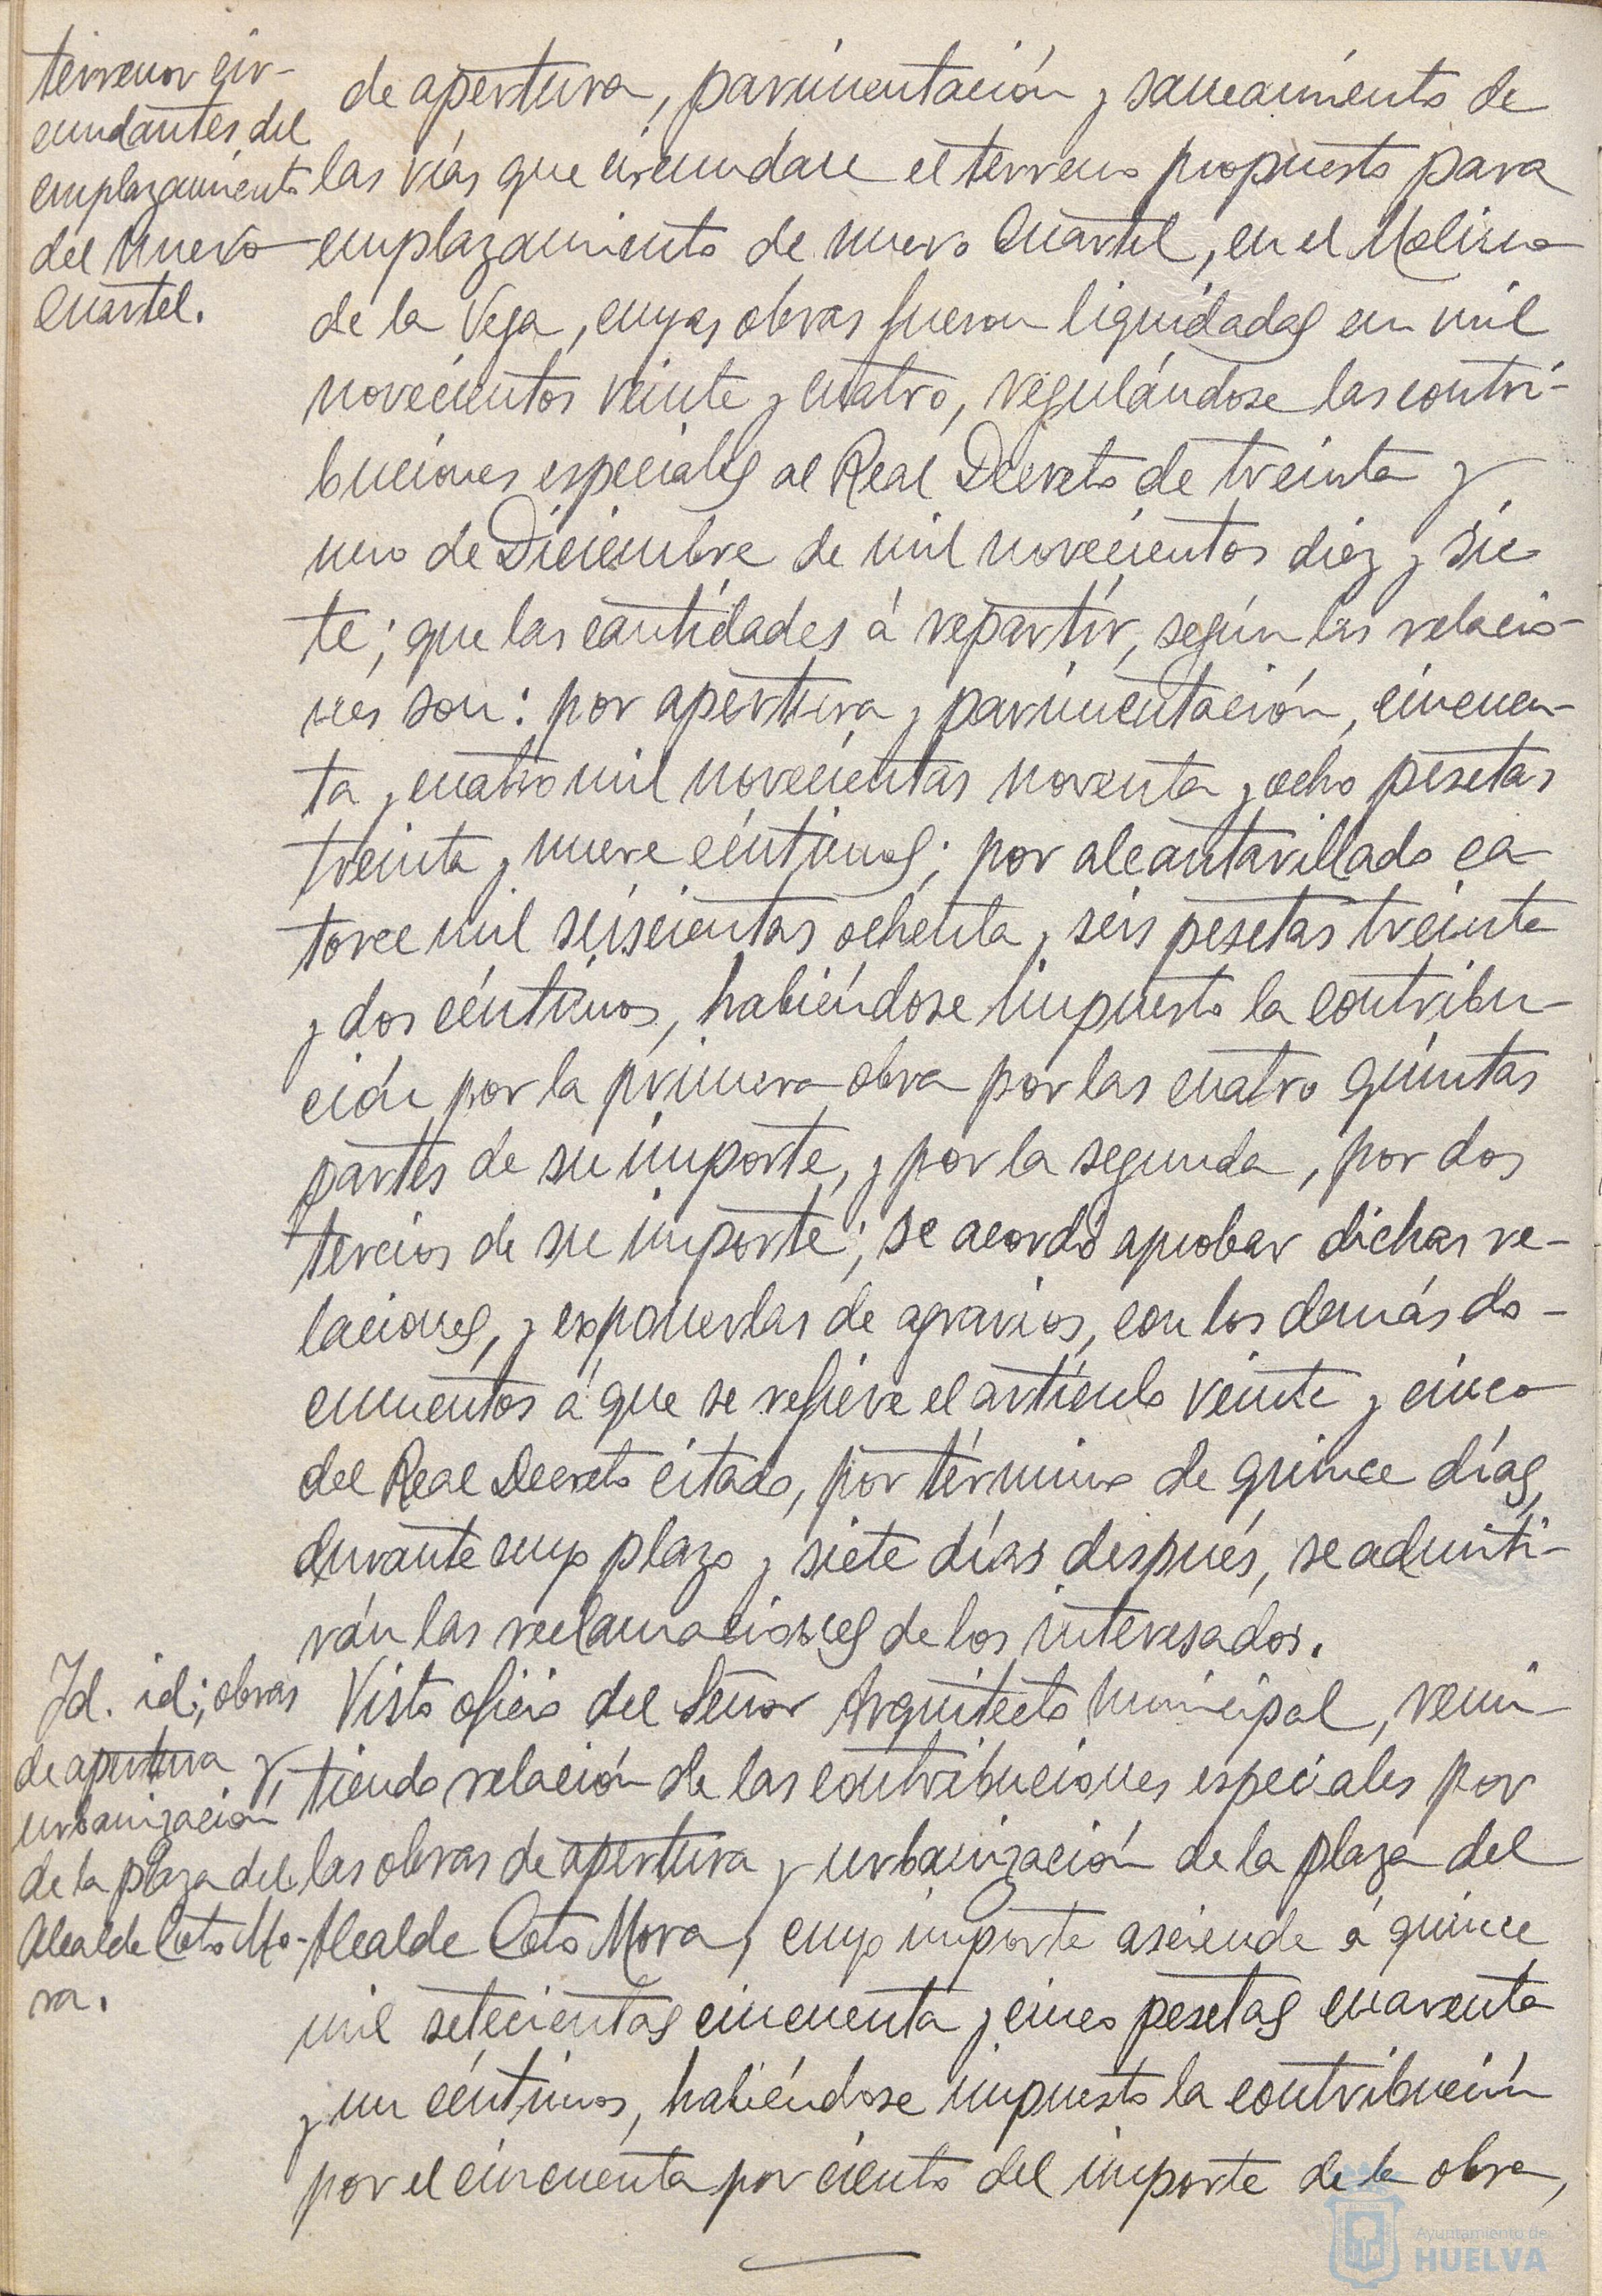 terrenos cir-
cundantes del
emplazamiento
del nuevo
Cuartel.
de apertura, pavimentación y saneamiento de
las vías que circundan el terreno propuesto para
emplazamiento de nuevo Cuartel, en el Molino
de la Vega, cuyas obras fueron liquidadas en mil
novecientos veinte y cuatro, regulándose las contri-
buciones especiales al Real Decreto de treinta y
uno de Diciembre de mil novecientos diez y sie
te; que las cantidades á repartir, según las relacio-
nes son: por apertura y pavimentación, cincuen-
ta y cuatro mil novecientas noventa y ocho pesetas
treinta y nueve céntimos; por alcantarillado ca
torce mil seiscientas ochenta y seis pesetas treinta
y dos céntimos, habiéndose impuesto la contribu-
ción por la primera obra por las cuatro quintas
partes de su importe, y por la segunda, por dos
tercios de su importe; se acordó aprobar dichas re-
laciones, y exponerlas de agravios, con los demás do-
cumentos á que se refiere el artículo veinte y cinco
del Real Decreto citado, por término de quince días,
durante cuyo plazo y siete días después, se admiti-
rán las reclamaciones de los interesados.
Id. id; obras
de apertura y
urbanización
de la plaza del
Alcalde Coto Mo-
ra.
Visto oficio del Señor Arquitecto Municipal, remi-
tiendo relación de las contribuciones especiales por
las obras de apertura y urbanización de la plaza del
Alcalde Coto Mora, cuyo importe asciende á quince
mil setecientas cincuenta y cinco pesetas cuarenta
y un céntimos, habiéndose impuesto la contribución
por el cincuenta por ciento del importe de la obra,
Ayuntamiento de
HUELVA